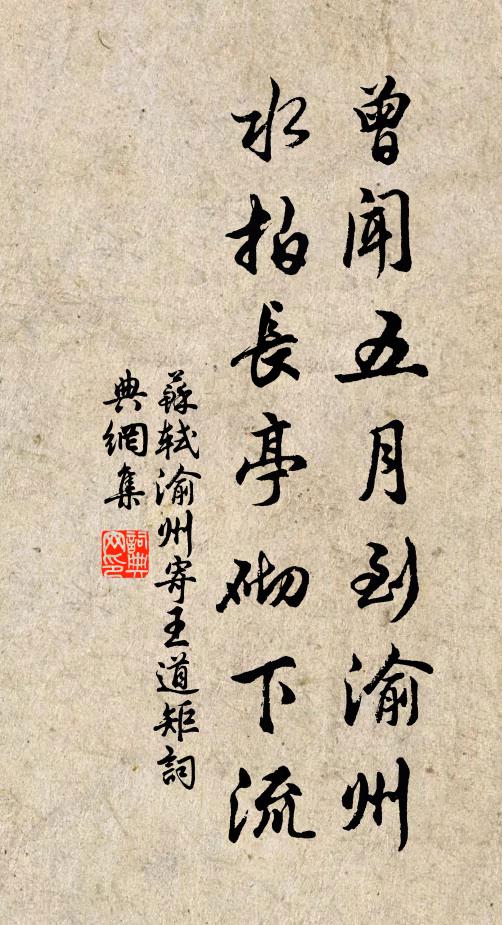 曾聞五月到渝州
水拍長亭砌下流
蘇軾渝州寄王道矩詞
典網集
詞典
网印